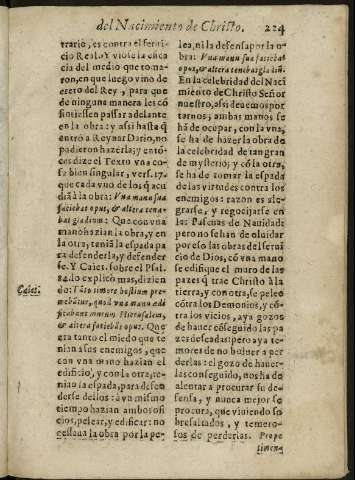 del Nacimiento de Christo. 224
trario, es contra el servi-
cio Real. Y viose la efica
cia del medio que toma-
ron, en que luego vino de
creto del Rey, para que
de ninguna manera les cō
sintiessen passar adelante
en la obra: y assi hasta q̃
entrò a Reynar Dario, no
pudieron hazerla; y entō
ces dize el Texto vna co-
sa bien singular, vers. 17.
que cada vno de los q̃ acu
dià a la obra: Vna manu sua
faciebat opus, & altera tene-
bat gladium: Que con vna
mano hazian la obra, y en
la otra, teniã la espada pa
ra defenderla, y defender
se. Y Caiet. sobre el Psal.
84. lo explicò mas, dizien
Caiet.
do: Tāto timore hostium pre-
mebātur, quod vna manu edi
ficabant murum Hierusalem,
& altera faciebat opus. Que
era tanto el miedo que te
nian a sus enemigos, que
con vna mano hazian el
edificio, y con la otra, te-
nian la espada, para defen
derse dellos: à vn mismo
tiempo hazian ambos ofi
cios, pelear, y edificar: no
cessaua la obra por la pe-
lea, ni la defensa por la o-
bra: Vna manu sua faciebat
opus, & altera tenebat gladiũ.
En la celebridad del Naci
miento de Christo Señor
nuestro, assi deuemos por
tarnos; ambas manos se
hā de ocupar, con la vna,
se ha de hazer la obra de
la celebridad de tan gran
de mysterio; y cō la otra,
se ha de tomar la espada
de las virtudes contra los
enemigos: razon es ale-
grarse, y regocijarse en
las Pascuas de Nauidad:
pero no se han de oluidar
por eso las obras del serui
cio de Dios, cō vna mano
se edifique el muro de las
pazes q̃ trae Christo à la
tierra, y con otra, se peleè
contra los Demonios, y cō
tra los vicios, aya gozos
de hauer cōseguido las pa
zes deseadas: pero aya te-
mores de no boluer a per
derlas: el gozo de hauer-
las conseguido, nos ha de
alentar a procurar su de-
fensa, y nunca mejor se
procura, que viuiendo so
bresaltados, y temero-
sos de perderlas. Prope
timen-